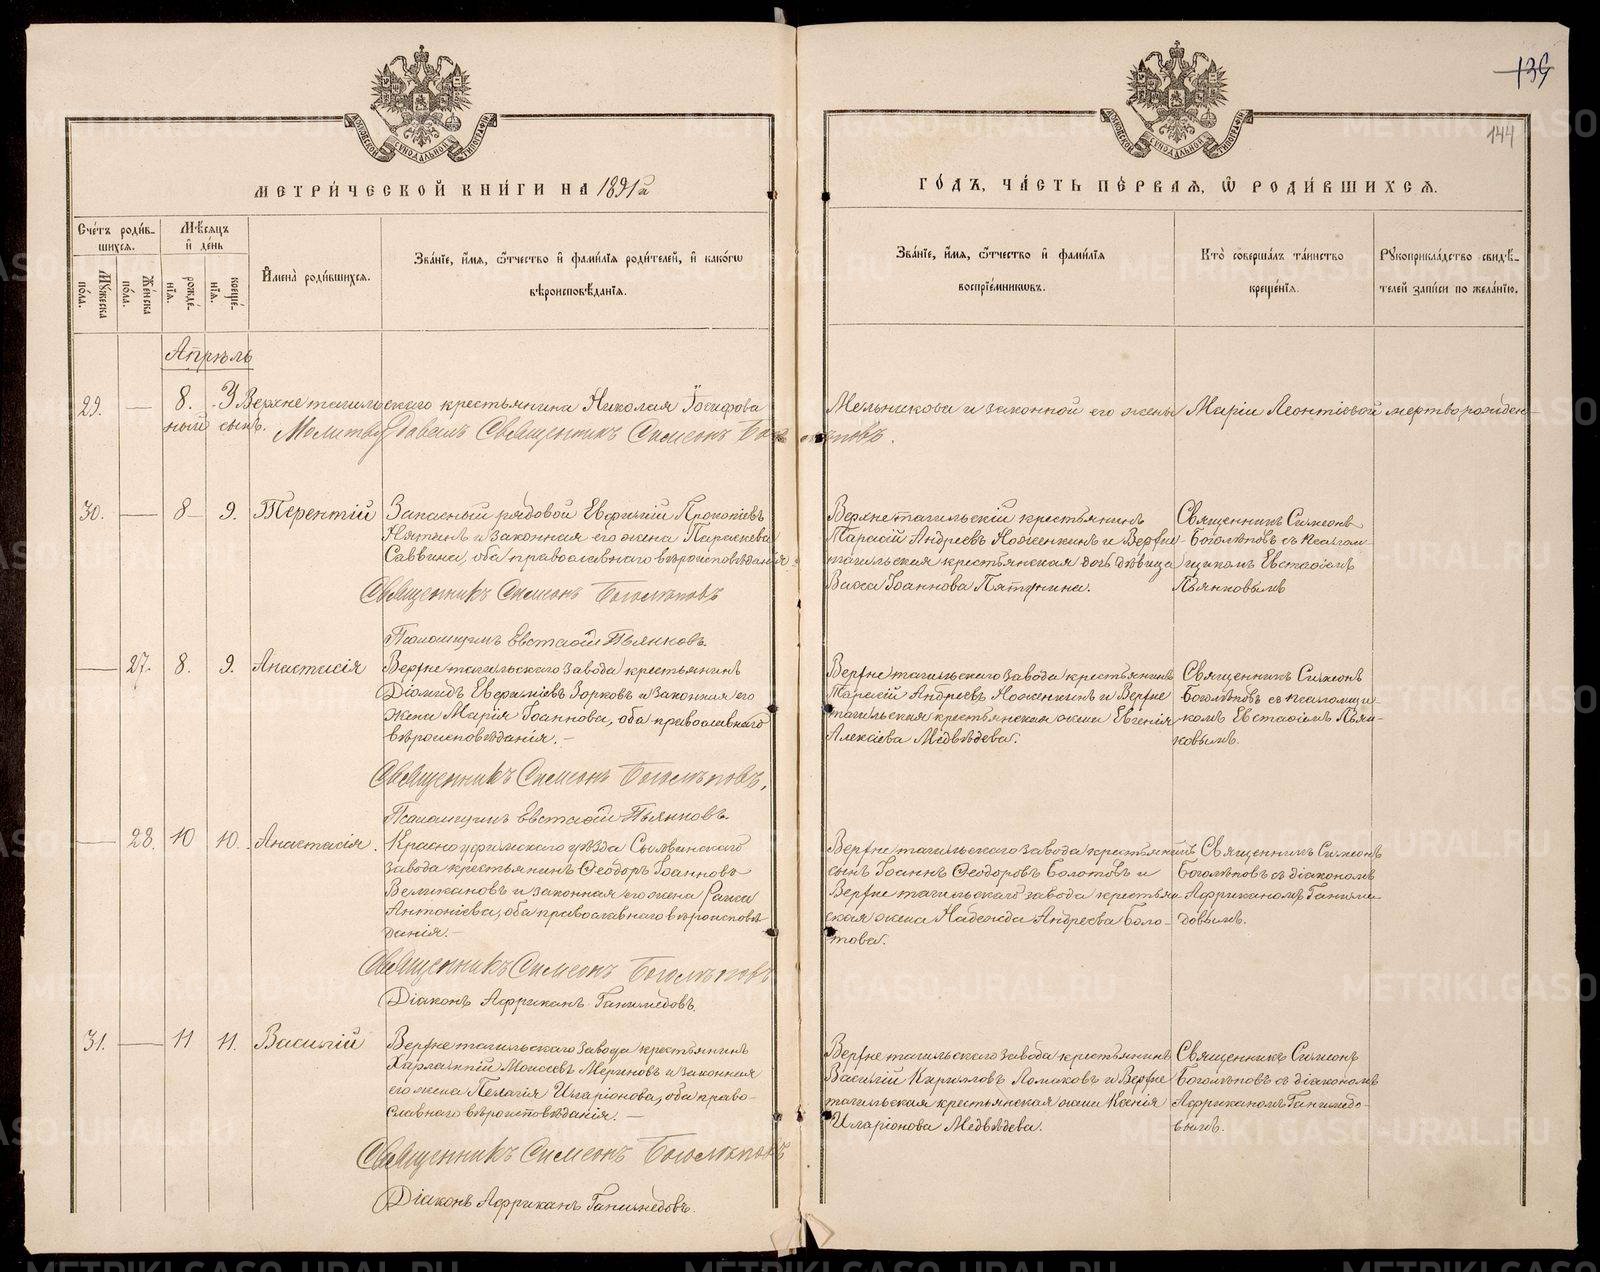 139
144
МЕТРИЧЕСКОЙ КНИГИ НА 1891й
ГОДЪ, ЧАСТЬ ПЕРВАЯ, Ѿ РОДИВШИХСЯ.
Счетъ родив-
шихся.
Мѣсяцъ
и день
Мужеска
пола.
Женска
пола.
рожде-
нїя.
креще-
нїя.
Имена родившихся.
Званїе, имя, ѿтчество и фамилїя родителей, и какогѡ
вѣроисповѣданїя.
Званїе, имя, ѿтчество и фамилїя
воспрїемникѡвъ.
Кто совершалъ таинство
крещенїя.
Рукоприкладство свидѣ-
телей записи по желанїю.
Апрѣль
29. — 8. Верхнетагильскаго крестьянина Николая Іосифова Мельникова и законной его жены Маріи Леонтіевой мертворожден-
ный сынъ. Молитву давалъ Священникъ Симеонъ Боголѣповъ.
30. — 8 9. Терентій
Запасный рядовой Евфимій Прокопіевъ
и законная его жена Параскева
Саввина, оба православнаго вѣроисповѣданія.
Священникъ Симеонъ Боголѣповъ
Псаломщикъ Евстафій Пьянковъ.
Верхнетагильскій крестьянинъ
Тарасій Андреевъ Ноженкинъ и Верхне-
тагильская крестьянская дочь дѣвица
Васса Іоаннова Пятунина.
Священникъ Симеонъ
Боголѣповъ съ псалом-
щикомъ Евстафіемъ
Пьянковымъ
— 27. 8. 9. Анастасія
Верхнетагильскаго завода крестьянинъ
Діомидъ Евфиміевъ Зорковъ и законная его
жена Марія Іоаннова, оба православнаго
вѣроисповѣданія. —
Священникъ Симеонъ Боголѣповъ,
Псаломщикъ Евстафій Пьянковъ.
Верхнетагильскаго завода крестьянинъ
Тарасій Андреевъ Ноженкинъ и Верхне
тагильская крестьянская жена Евгенія
Алексіева Медвѣдева.
Священникъ Симеонъ
Боголѣповъ съ псаломщи-
комъ Евстафіемъ Пьян-
ковымъ.
— 28. 10 10. Анастасія.
Красноуфимскаго уѣзда Сылвинскаго
завода крестьянинъ Ѳеодоръ Іоанновъ
Великановъ и законная его жена Раиса
Антоніева, оба православнаго вѣроисповѣ
данія. —
Священникъ Симеонъ Боголѣповъ
Діаконъ Африканъ Ганимедовъ.
Верхнетагильскаго завода крестьянинъ
сынъ Іоаннъ Ѳеодоровъ Болотовъ и
Верхнетагильскаго завода крестьян
ская жена Надежда Андреева Боло-
това.
Священникъ Симеонъ
Боголѣповъ съ діакономъ
Африканомъ Ганиме-
довымъ.
31. — 11 11. Василій
Верхнетагильскаго завода крестьянинъ
Харлампій Моисеевъ Мериновъ и законная
его жена Пелагія Иларіонова, оба право-
славнаго вѣроисповѣданія. —
Священникъ Симеонъ Боголѣповъ
Діаконъ Африканъ Ганимедовъ.
Верхнетагильскаго завода крестьянинъ
Василій Кирилловъ Ломаковъ и Верхне
тагильская крестьянская жена Ксенія
Иларіонова Медвѣдева.
Священникъ Симеонъ
Боголѣповъ съ діакономъ
Африканомъ Ганимедо-
вымъ.
METRIKI.GASO-URAL.RU